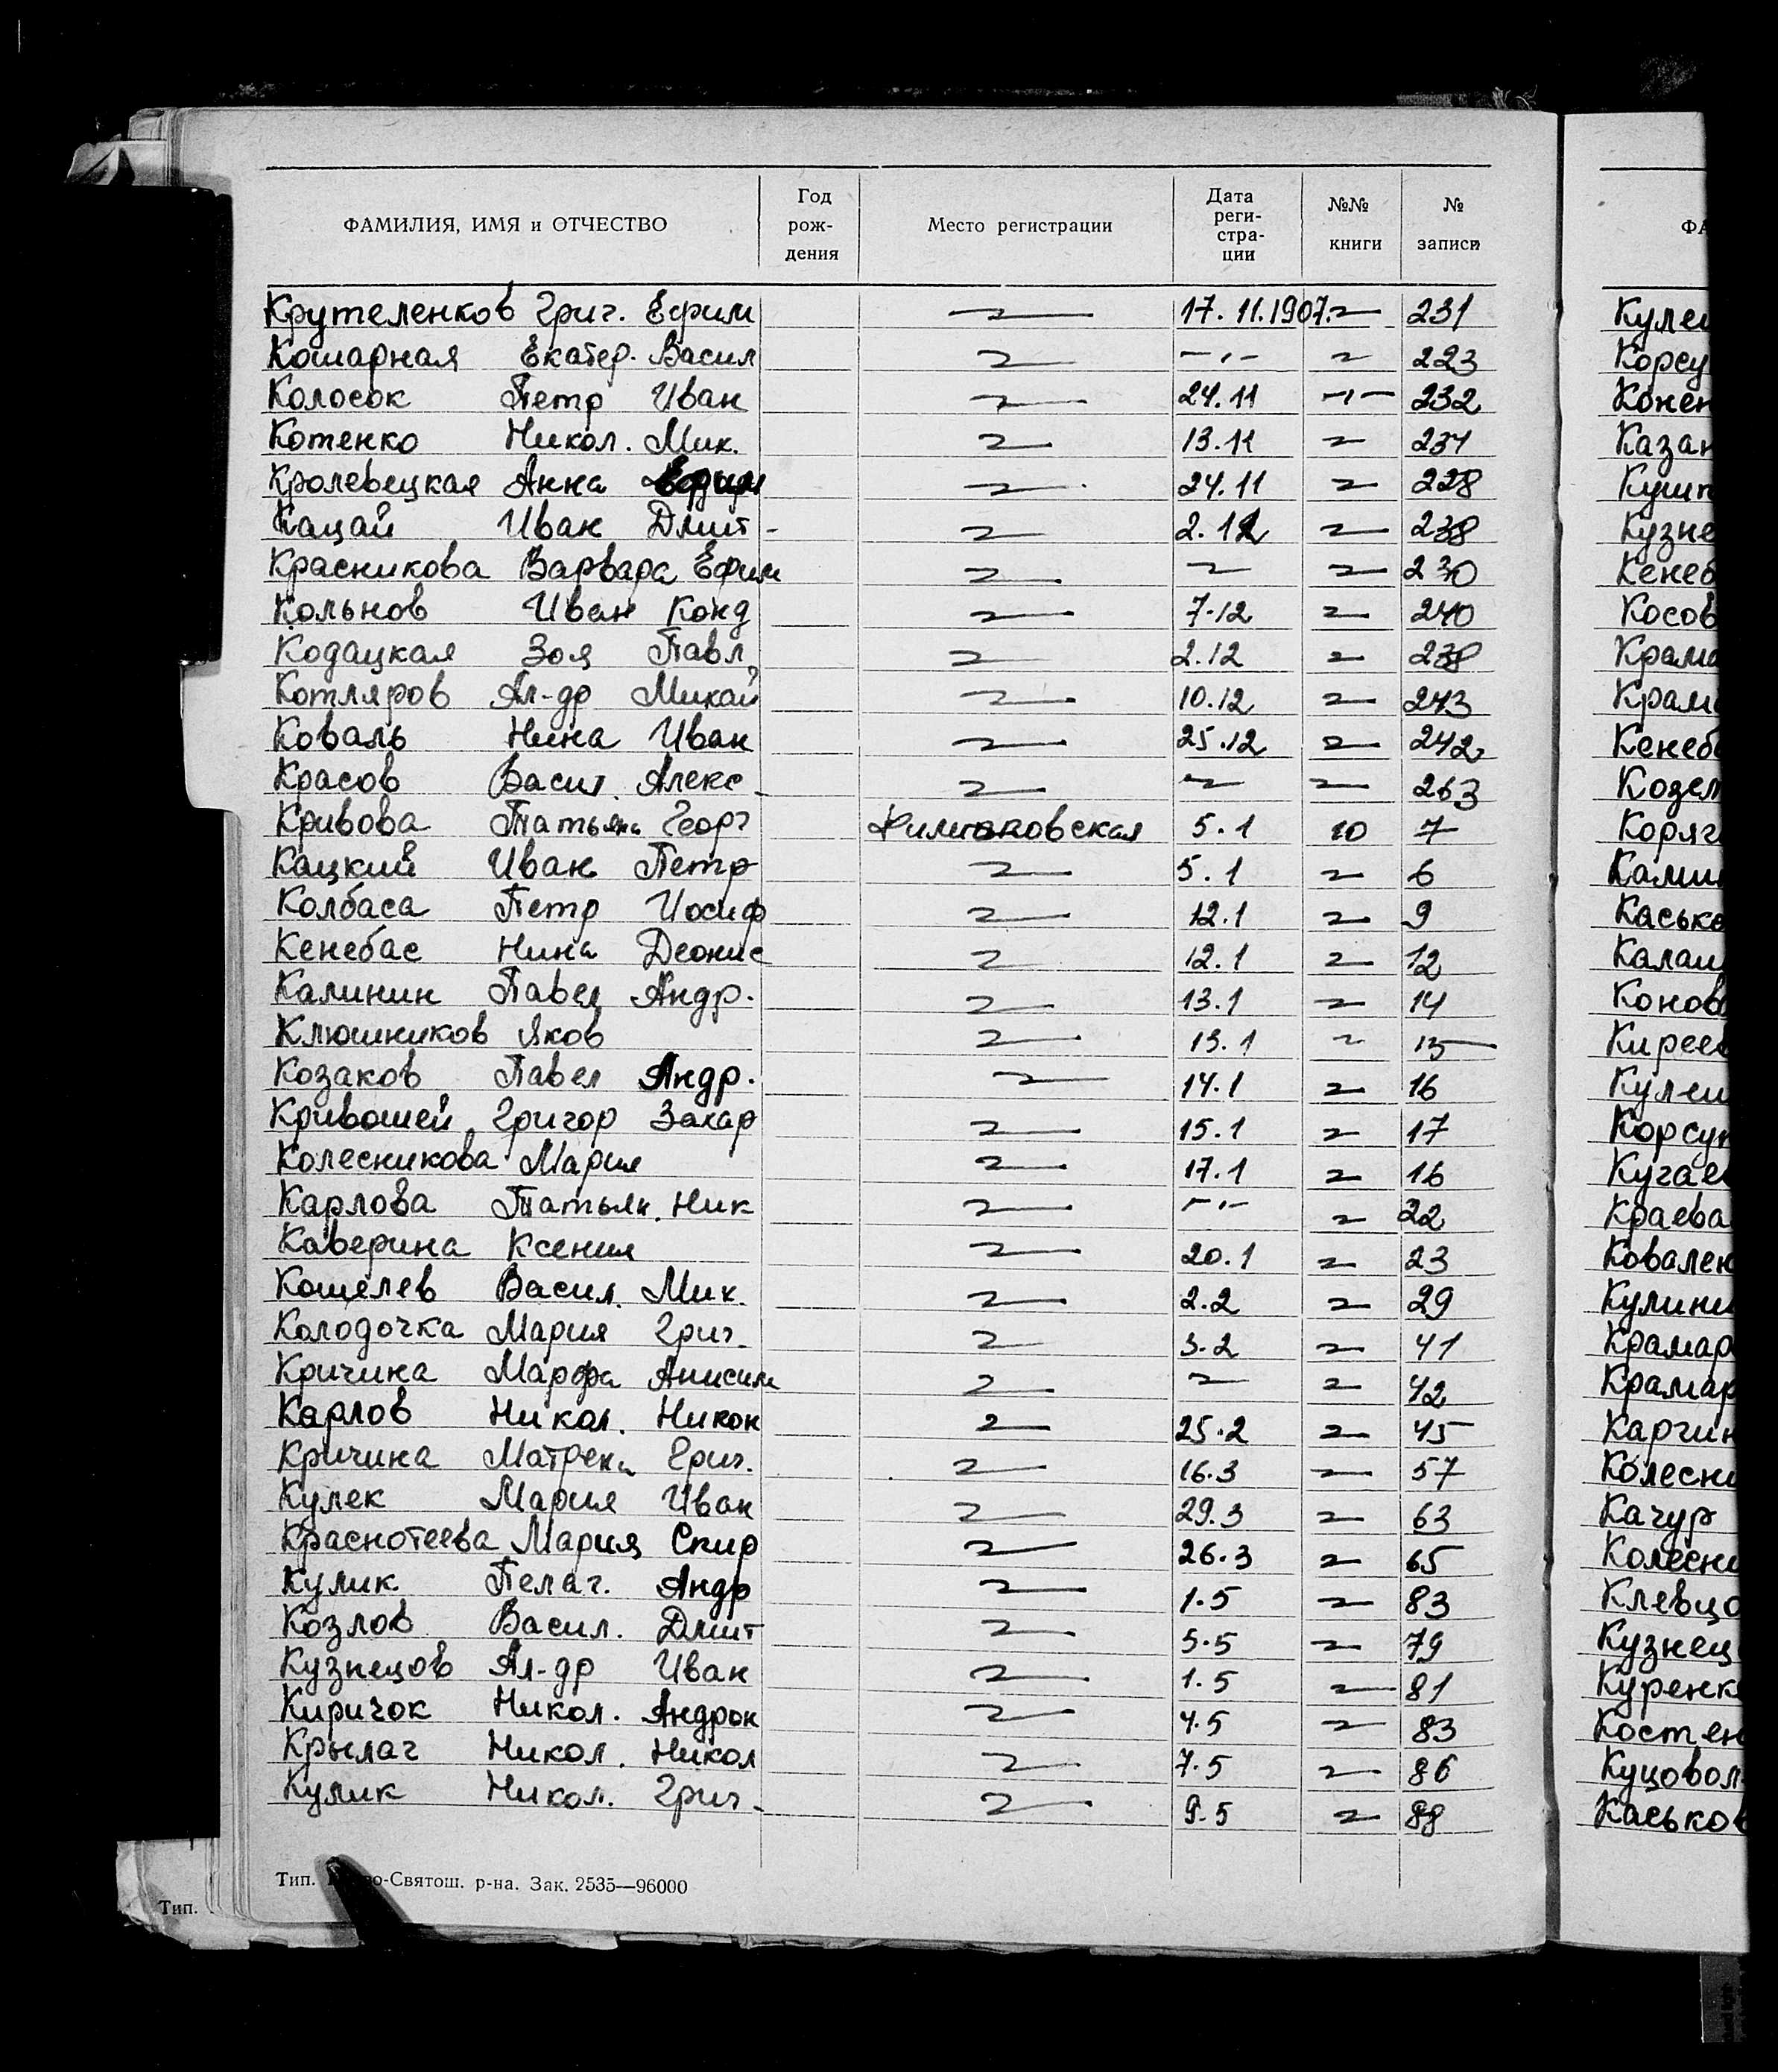 ФАМИЛИЯ, ИМЯ и ОТЧЕСТВО Год рож- дения Место регистрации Дата реги- стра- ции №№ книги № записи
Крутеленков Григ. Ефим 〃 17.11.1907. 〃 231
Кошарная Екатер. Васил 〃 -"- 〃 223
Колосок Петр Иван 〃 24.11 -"- 232
Котенко Никол. Мих. 〃 13.11 〃 234
Кролевецкая Анна Ефим 〃 24.11 〃 228
Кацай Иван Дмит- 〃 2.12 〃 238
Красникова Варвара Ефим 〃 〃 〃 230
Кольнов Иван Конд 〃 7.12 〃 240
Кодацкая Зоя Павл 〃 2.12 〃 238
Котляров Ал-др Михай 〃 10.12 〃 243
Коваль Нина Иван 〃 25.12 〃 242
Красов Васил. Алекс- 〃 〃 〃 263
Кривова Татьяна Георг 5.1 10 7
Кацкий Иван Петр 〃 5.1 〃 6
Колбаса Петр Иосиф 〃 12.1 〃 9
Кенебас Нина Деонис 〃 12.1 〃 12
Калинин Павел Андр. 〃 13.1 〃 14
Клюшников Яков 〃 13.1 〃 15
Козаков Павел Андр. 〃 14.1 〃 16
Кривошей Григор Захар 〃 15.1 〃 17
Колесникова Мария 〃 17.1 〃 16
Карлова Татьян. Ник 〃 -"- 〃 22
Каверина Ксения 〃 20.1 〃 23
Кошелев Васил. Мих. 〃 2.2 〃 29
Колодочка Мария Григ- 〃 3.2 〃 41
Кричина Марфа Анисим 〃 〃 〃 42
Карлов Никол. Никон 〃 25.2 〃 45
Кричина Матрена Григ. 〃 16.3 〃 57
Кулек Мария Иван 〃 29.3 〃 63
Краснотеева Мария Спир 〃 26.3 〃 65
Кулик Пелаг. Андр 〃 1.5 〃 83
Козлов Васил. Дмит 〃 5.5 〃 79
Кузнецов Ал-др Иван 〃 1.5 〃 81
Киричок Никол. Андрон 〃 4.5 〃 83
Крылач Никол. Никол 〃 7.5 〃 86
Кулик Никол. Григ- 〃 9.5 〃 88
Тип. о-Святош. р-на. Зак. 2535—96000
Тип.
ФА
Кулеш
Корсу
Конен
Казан
Кузне
Кенеб
Косов
Крама
Крам
Кенеб
Козел
Коряг
Камин
Касько
Конов
Киреев
Кулеш
Корсун
Кугае
Краева
Ковален
Кулини
Крамар
Крамар
Каргин
Колесни
Качур
Колесни
Клевцо
Кузнец
Куренк
Костен
Куцовол
Каськов